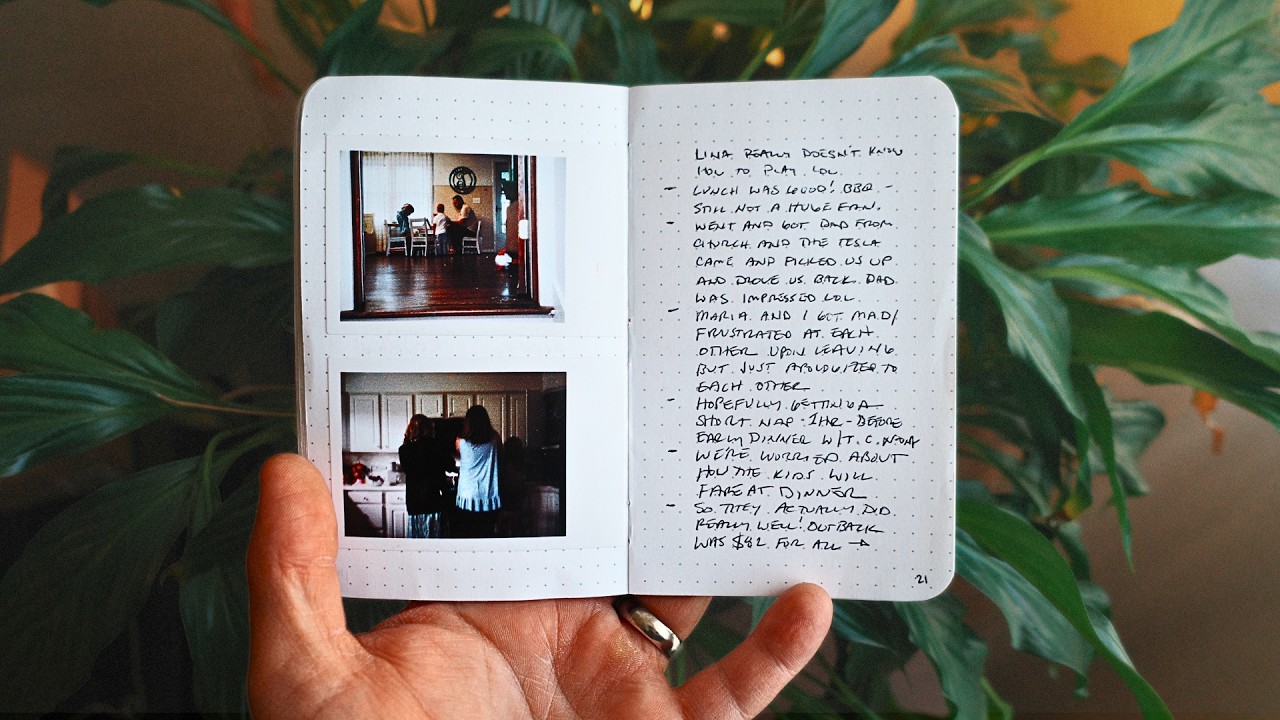 LINA REALLY DOESN'T KNOW
HOW TO PLAY LOL.
- LUNCH WAS GOOD! BBQ -
STILL NOT A HUGE FAN.
- WENT AND GOT DAD FROM
CHURCH AND THE TESLA
CAME AND PICKED US UP
AND DROVE US BACK. DAD
WAS IMPRESSED LOL
- MARIA AND I GOT MAD/
FRUSTRATED AT EACH
OTHER UPON LEAVING
BUT JUST APOLOGIZED TO
EACH OTHER
- HOPEFULLY GETTING A
SHORT NAP - 1HR - BEFORE
EARLY DINNER W/ T. C.
- WE'RE WORRIED ABOUT
HOW THE KIDS WILL
FARE AT DINNER
- SO THEY ACTUALLY DID
REALLY WELL! OUTBACK
WAS $82 FOR ALL →
21